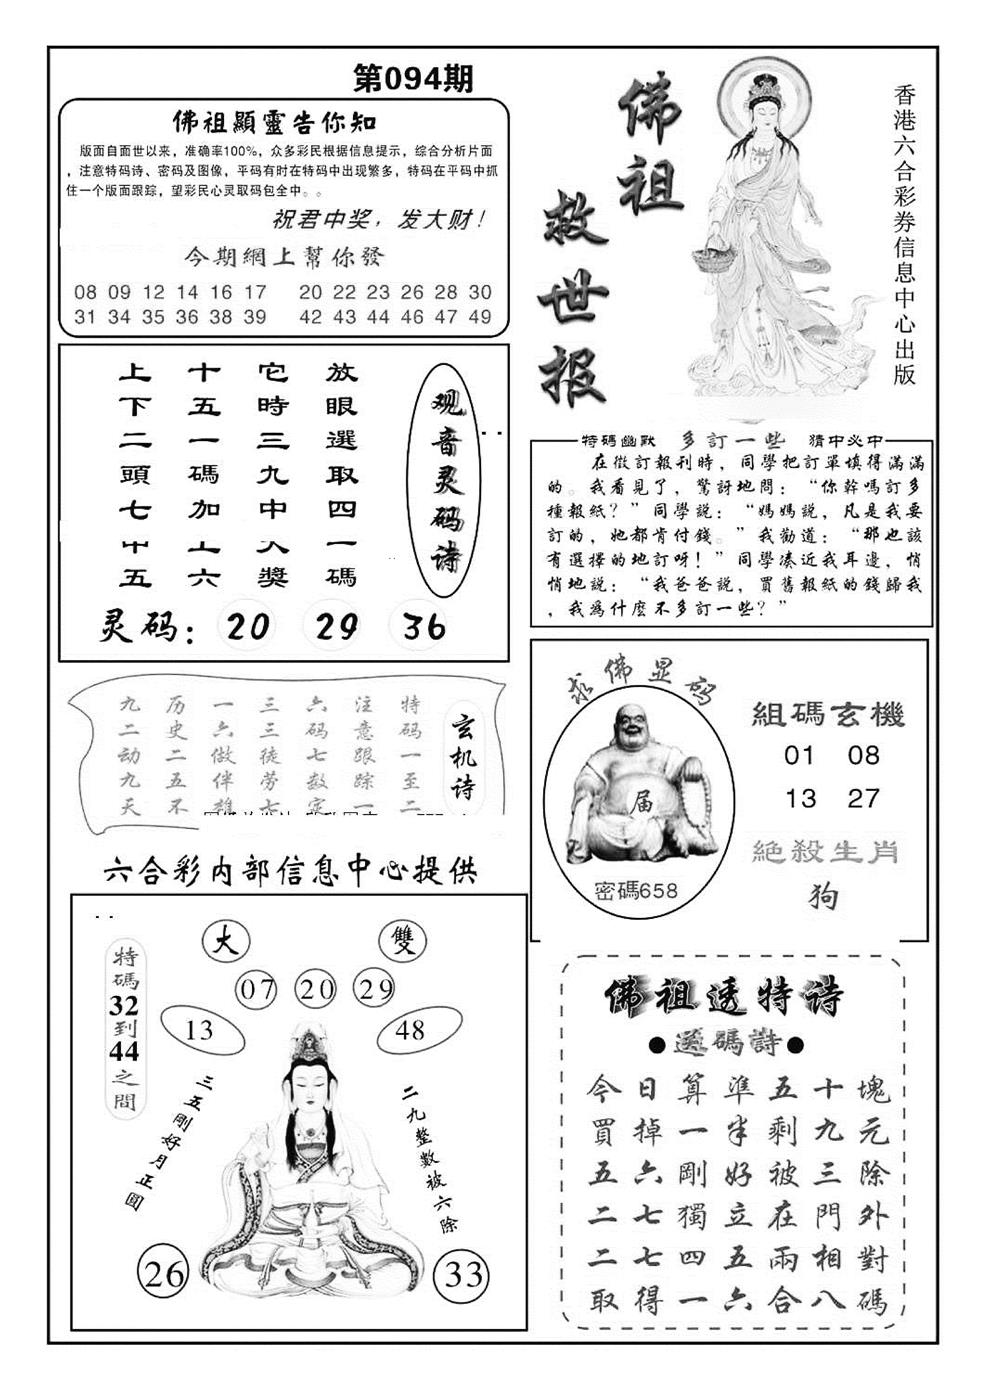 第094期
佛祖顯靈告你知
版面自面世以来，准确率100%，众多彩民根据信息提示，综合分析片面
，注意特码诗、密码及图像，平码有时在特码中出现繁多，特码在平码中抓
住一个版面跟踪，望彩民心灵取码包全中。。
祝君中奖，发大财！
今期網上幫你發
08 09 12 14 16 17 20 22 23 26 28 30
31 34 35 36 38 39 42 43 44 46 47 49
佛祖
救世报
香港六合彩券信息中心出版
观音灵码诗
放眼選取四一碼
它時三九中人獎
十五一碼加上六
上下二頭七中五
灵码：20 29 36
特碼幽默 多訂一些 猜中必中
在徵訂報刊時，同學把訂單填得滿滿
的。我看見了，驚訝地問：“你幹嗎訂多
種報紙？”同學説：“媽媽説，凡是我要
訂的，她都肯付錢。”我勸道：“那也該
有選擇的地訂呀！”同學凑近我耳邊，悄
悄地説：“我爸爸説，買舊報紙的錢歸我
，我為什麼不多訂一些？”
玄机诗
特码一至二
注意跟踪一
六码七数定
三三徒劳七
一六做伴雄
历史二五不
九二动九天
求佛显码
届
密碼658
組碼玄機
01 08
13 27
絕殺生肖
狗
六合彩内部信息中心提供
大 雙
07 20 29
13 48
特碼32到44之間
三五剛好月正圓
二九整數被六除
26 33
佛祖透特诗
●透碼詩●
今日算準五十塊
買掉一半剩九元
五六剛好被三除
二七獨立在門外
二七四五兩相對
取得一六合八碼